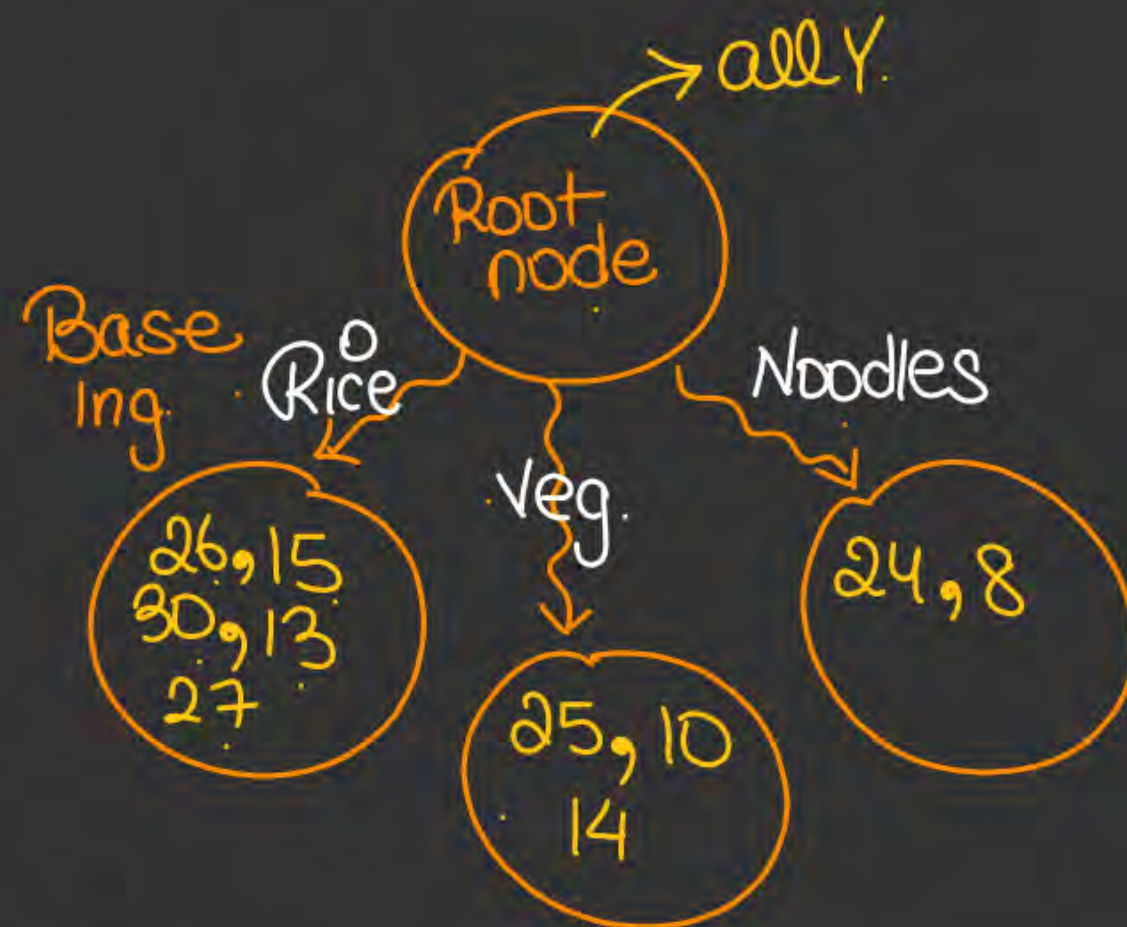 all Y.
Root
node
Base
ing.
Rice
Veg.
Noodles
26, 15
30, 13
27
25, 10
14
24, 8